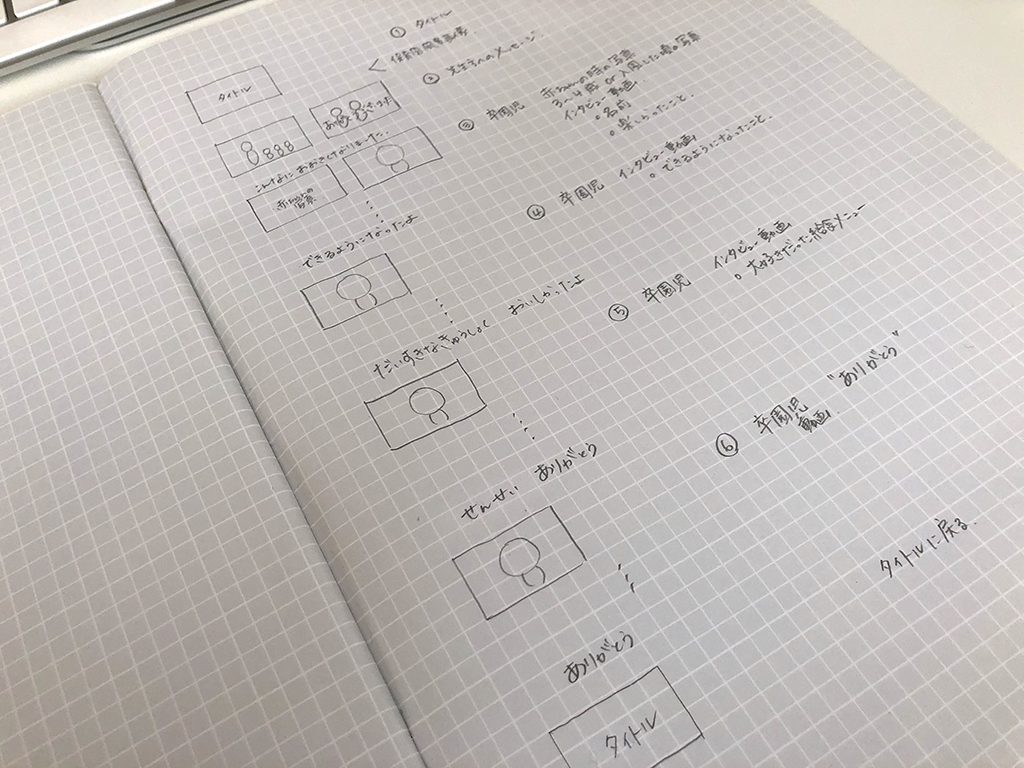 ① タイトル
タイトル
② 先生方へのメッセージ
こんなにおおきくなりました。
赤ちゃんの
写真
③ 卒園児 赤ちゃんの時の写真
3〜4歳 or 入園した頃の写真
インタビュー動画
○ 名前
○ 楽しかったこと。
できるようになったよ
④ 卒園児 インタビュー動画
○ できるようになったこと。
だいすきなきゅうしょく おいしかったよ
⑤ 卒園児 インタビュー動画
○ 大好きだった給食メニュー
せんせい ありがとう
⑥ 卒園児 "ありがとう"
動画
ありがとう
タイトル
タイトルに戻る。